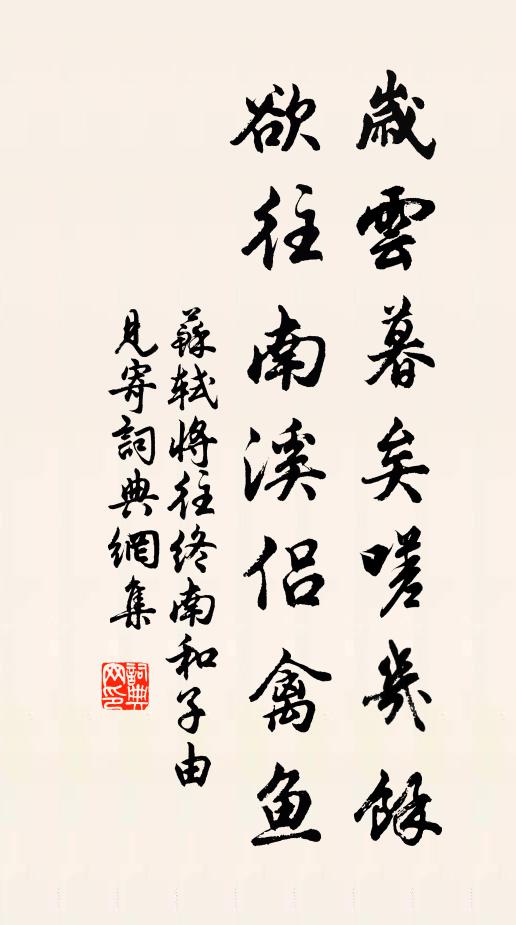 歲雲暮矣嗟幾餘
欲往南溪侶禽魚
蘇軾將往終南和子由
見寄詞典網集
詞典
网印